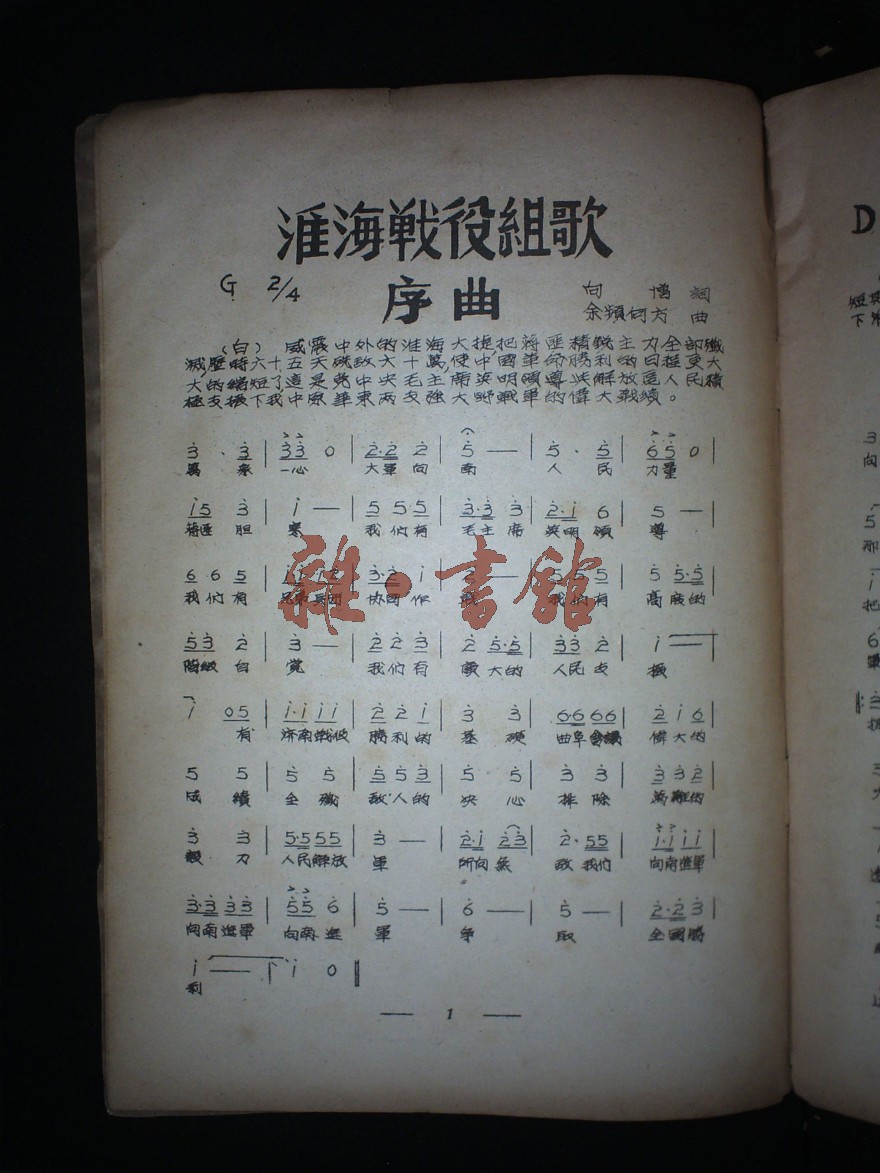 淮海戰役組歌
G 2/4 序曲 向 詞
余頻何方 曲
(白) 威震中外的淮海大捷,把蔣匪精銳主力全部殲
滅歷時六十五天殲敵六十萬,使中國革命勝利的日程更大
大的縮短了這是党中央毛主席英明領導,解放區人民積
極支援下我中原華東两支強大野戰軍的偉大戰績。
3 · 3 | 3 3 0 | 2·2 2 | 5 — | 5 · 5 | 6 5 0 |
萬 眾 一心 大軍向 南 人 民 力量
1 5 3 | 1 — | 5 5·5 | 3·3 3 | 2·1 6 | 5 — |
蔣匪 胆 寒 我們有 毛主席 英明領 導
6 6 5 | 1·1 1 2 | 3·2 1 | — | 5 5 5 | 5 5·5 |
我們有 兄弟兵团 协同作 戰 我們有 高度的
5 3 2 | 3 — | 2 2 3 | 2 5·5 | 3 3 2 | 1 — |
階級自 覚 我們有 廣大的 人民支 援
1 0 5 | 1·1 1 1 | 2 2 1 | 3 3 | 6·6 6 6 | 2 1 6 |
有 济南戰役 勝利的 基 礎 曲阜會議 偉大的
5 5 | 5 5 | 5 5 3 | 5 5 | 3 3 | 3 3 2 |
成 績 全 殲 敌人的 決 心 排 除 萬難的
3 3 | 5·5 5 5 | 3 — | 2·1 2 3 | 2· 5 5 | 1·1 1 1 |
毅 力 人民解放 軍 所向無 敌我們 向南進軍
3·3 3 3 | 5 5 6 | 5 — | 6 — | 5 — | 2·2 3 |
向南進軍 向南進 軍 爭 取 全國勝
1 — | 1 0 ‖
利
— 1 —
雜·書館
D